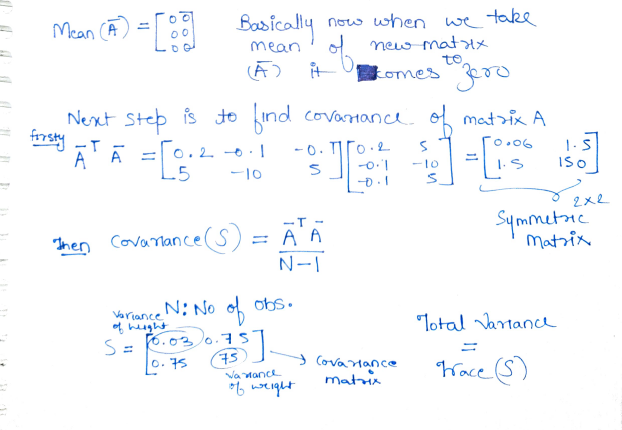 Mean (Ā) = [0 0
0 0
0 0]
Basically now when we take
mean of new matrix
(Ā) it comes to zero
Next step is to find covariance of matrix A
firsty
Ā^T Ā = [0.2 -0.1 -0.1
5 -10 5] [0.2 5
-0.1 -10
-0.1 5] = [0.06 1.5
1.5 150]
2x2
Symmetric
Matrix
Then Covariance (S) = Ā^T Ā
N-1
N: No of obs.
Variance
of height
S = [0.03 0.75
0.75 75]
Variance
of weight
→ Covariance
matrix
Total Variance
=
Trace (S)